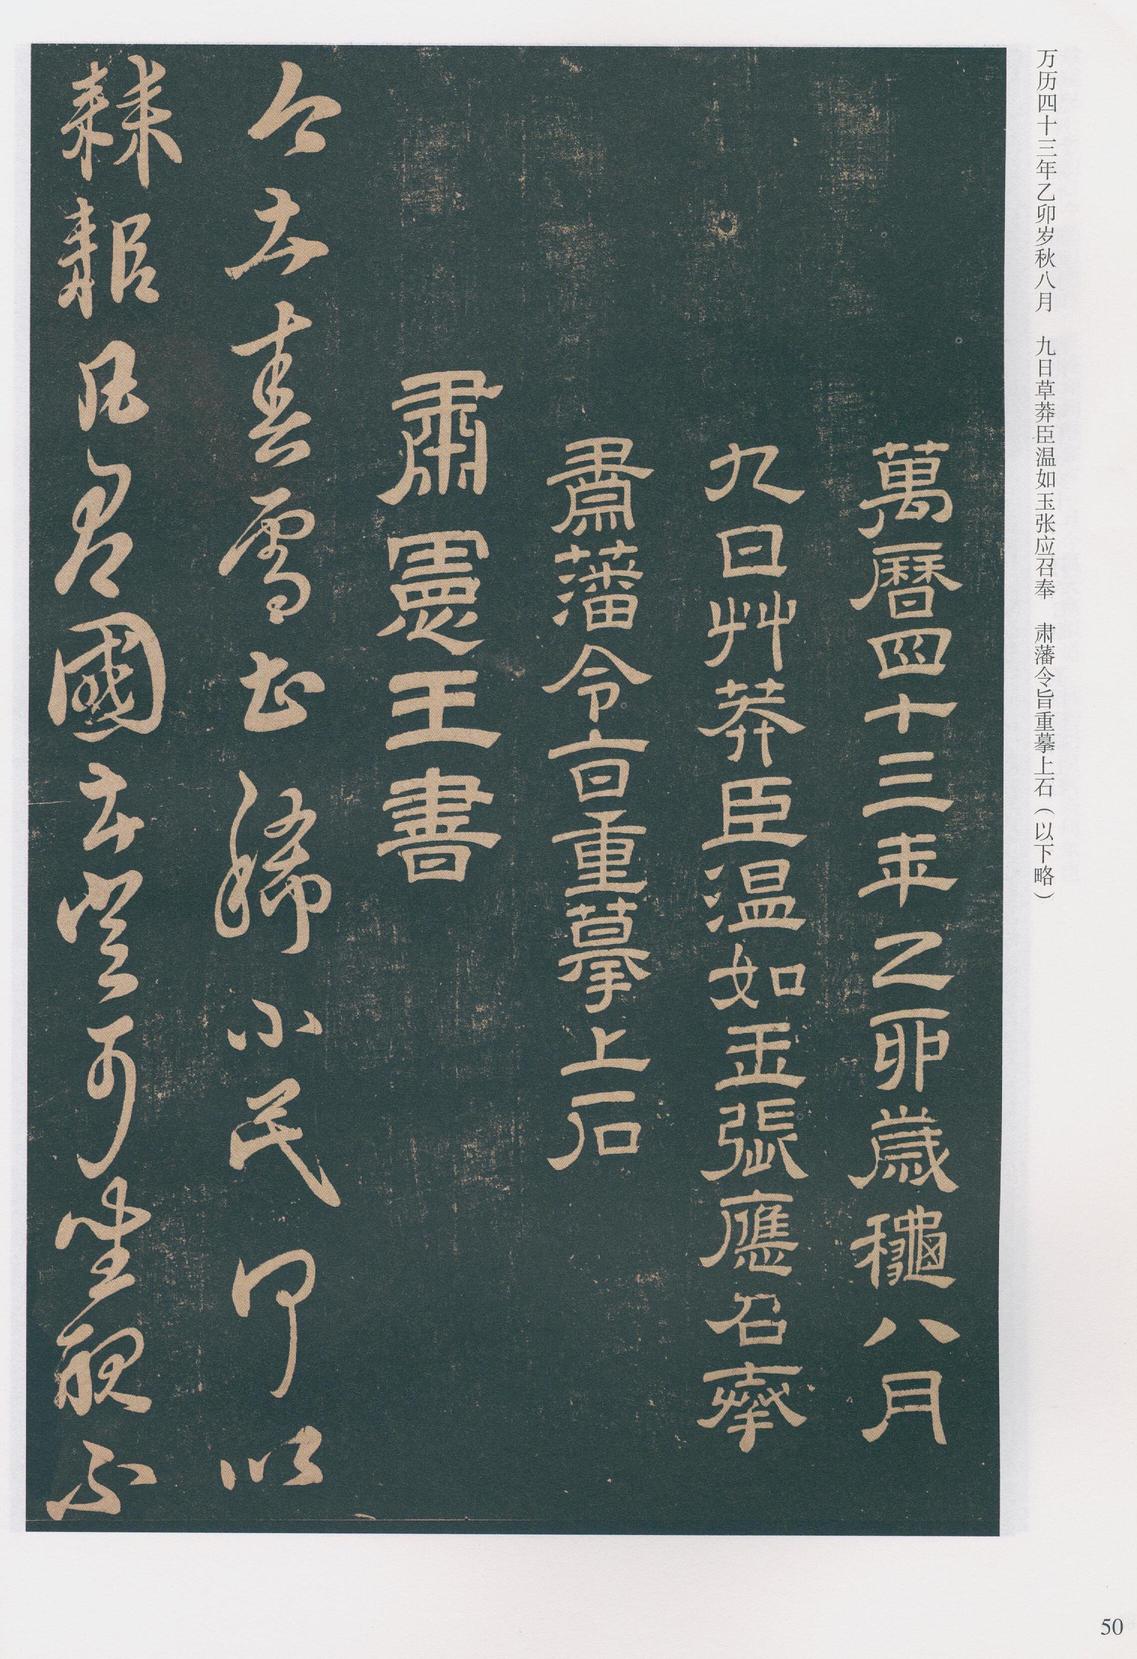 万历四十三年乙卯岁秋八月　九日草莽臣温如玉张应召奉　肃藩令旨重摹上石（以下略）
萬曆四十三年乙卯歲龝八月
九日艸莽臣温如玉張應召奉
肅藩令旨重摹上石
肅憲王書
小民何以
耜凡居國土豈可坐視不
50